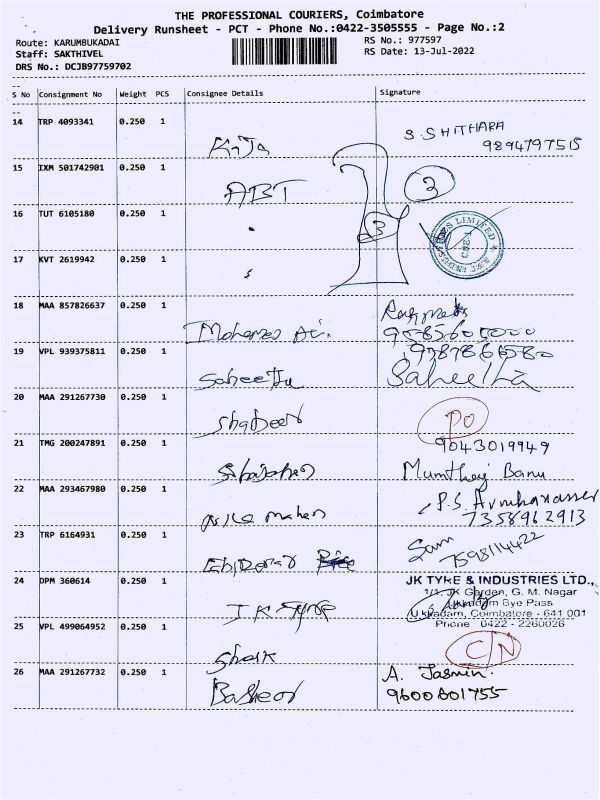 THE PROFESSIONAL COURIERS, Coimbatore
Delivery Runsheet - PCT - Phone No.:0422-3505555 - Page No.:2
Route: KARUMBUKADAI
RS No.: 977597
Staff: SAKTHIVEL
RS Date: 13-Jul-2022
DRS No.: DCJB97759702
S No Consignment No Weight PCS Consignee Details Signature
14 TRP 4093341 0.250 1 S. SHITHARA
9894797515
15 IXM 501742901 0.250 1 ABT 3
16 TUT 6105180 0.250 1 3
17 KVT 2619942 0.250 1
18 MAA 857826637 0.250 1 Mohamed Ali
19 VPL 939375811 0.250 1 Saheetha Saheetha
20 MAA 291267730 0.250 1 Shabeer PO
9043019949
21 TMG 200247891 0.250 1 Shajahan Mumthaj Banu
22 MAA 293467980 0.250 1 P.S.
7358962913
23 TRP 6164931 0.250 1 Sam
7598114422
24 DPM 360614 0.250 1 J K Tyre
JK TYRE & INDUSTRIES LTD.,
1/1, JK Garden, G. M. Nagar
Ukkadam Bye Pass
Ukkadam, Coimbatore - 641 001
Phone : 0422 - 2260026
25 VPL 499064952 0.250 1 Shaik C/N
26 MAA 291267732 0.250 1 Basheer A. Jasmin.
9600601755